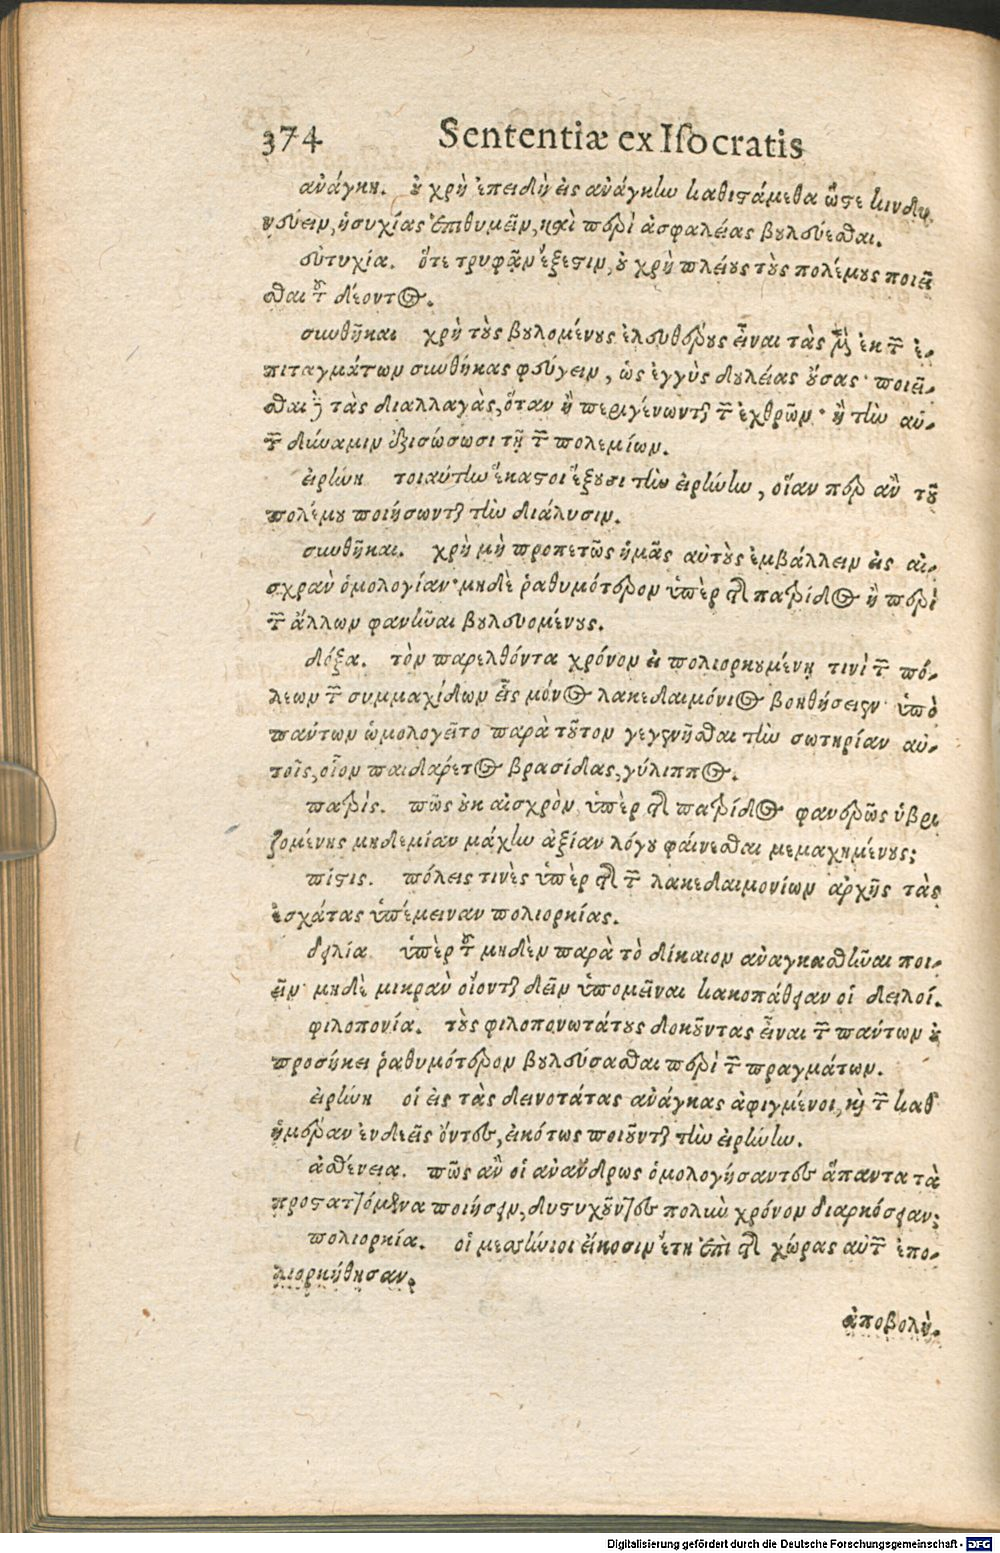 374 Sententiæ ex Isocratis
ἀνάγκη. οὐ χρὴ ἐπειδὴ εἰς ἀνάγκην καθιστάμεθα ὥστε κινδυ-
νεύειν, ἡσυχίας ἐπιθυμεῖν, καὶ περὶ ἀσφαλείας βουλεύεσθαι.
εὐτυχία. ὅτε τρυφᾷν ἔξεστιν, οὐ χρὴ πλείους τοὺς πολέμους ποιεῖ
σθαι τοῦ δέοντος.
συνθῆκαι χρὴ τοὺς βουλομένους ἐλευθέρους εἶναι τὰς μὲν ἐκ τῶν ἐ-
πιταγμάτων συνθήκας φεύγειν, ὡς ἐγγὺς δουλείας οὔσας· ποιεῖ-
σθαι δὲ τὰς διαλλαγὰς, ὅταν ἢ περιγένωνται τῶν ἐχθρῶν· ἢ τὴν αὑ-
τῶν δύναμιν ἐξισώσωσι τῇ τῶν πολεμίων.
εἰρήνη τοιαύτην ἕκαστοι ἕξουσι τὴν εἰρήνην, οἵαν περ ἂν τοῦ
πολέμου ποιήσωνται τὴν διάλυσιν.
συνθῆκαι. χρὴ μὴ προπετῶς ἡμᾶς αὐτοὺς ἐμβάλλειν εἰς αἰ-
σχρὰν ὁμολογίαν· μηδὲ ῥαθυμότερον ὑπὲρ τῆς πατρίδος ἢ περὶ
τῶν ἄλλων φανῆναι βουλευομένους.
δόξα. τὸν παρελθόντα χρόνον εἰ πολιορκουμένῃ τινὶ τῶν πό-
λεων τῶν συμμαχίδων εἷς μόνος λακεδαιμόνιος βοηθήσειεν· ὑπὸ
πάντων ὡμολογεῖτο παρὰ τοῦτον γεγενῆσθαι τὴν σωτηρίαν αὐ-
τοῖς, οἷον παιδαρετος βρασίδας, γύλιππος.
πατρὶς. πῶς οὐκ αἰσχρὸν ὑπὲρ τῆς πατρίδος φανερῶς ὑβρι
ζομένης μηδεμίαν μάχην ἀξίαν λόγου φαίνεσθαι μεμαχημένους;
πίστις. πόλεις τινὲς ὑπὲρ τῆς τῶν λακεδαιμονίων ἀρχῆς τὰς
ἐσχάτας ὑπέμειναν πολιορκίας.
δειλία ὑπὲρ τοῦ μηδὲν παρὰ τὸ δίκαιον ἀναγκασθῆναι ποι-
εῖν· μηδὲ μικρὰν οἴονται δεῖν ὑπομεῖναι κακοπάθειαν οἱ δειλοί.
φιλοπονία. τοὺς φιλοπονωτάτους δοκοῦντας εἶναι τῶν πάντων οὐ
προσήκει ῥαθυμότερον βουλεύσασθαι περὶ τῶν πραγμάτων.
εἰρήνη οἱ εἰς τὰς δεινοτάτας ἀνάγκας ἀφιγμένοι, καὶ τῶν καθ᾽
ἡμέραν ἐνδεεῖς ὄντες, εἰκότως ποιοῦνται τὴν εἰρήνην.
ἀσθένεια. πῶς ἂν οἱ ἀνάνδρως ὁμολογήσαντες ἅπαντα τὰ
προσταττόμενα ποιήσειν, δυστυχοῦντες πολὺν χρόνον διαρκέσειαν;
πολιορκία. οἱ μεσσήνιοι εἴκοσιν ἔτη ἐπὶ τῆς χώρας αὐτῶν ἐπο-
λιορκήθησαν.
ἀποβολὴ.
Digitalisierung gefördert durch die Deutsche Forschungsgemeinschaft - DFG